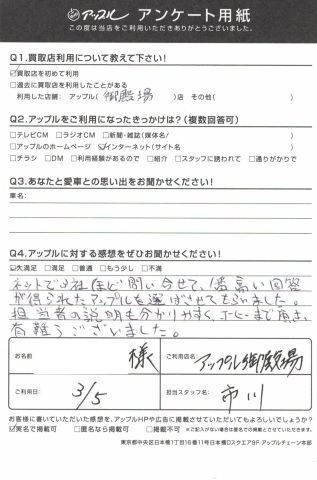 アップル アンケート用紙
この度は当店をご利用いただきありがとうございました。
Q1.買取店利用について教えて下さい!
☑買取店を初めて利用
□過去に買取店を利用したことがある
利用した店舗: アップル( 御殿場 )店 その他( )
Q2.アップルをご利用になったきっかけは?(複数回答可)
□テレビCM □ラジオCM □新聞・雑誌(媒体名/ )
□アップルのホームページ ☑インターネット(サイト名 )
□チラシ □DM □利用経験があるので □紹介 □スタッフに誘われて □通りがかりで
Q3.あなたと愛車との思い出をお聞かせください!
車名:
Q4.アップルに対する感想をぜひお聞かせください!
☑大満足 □満足 □普通 □もう少し □不満
ネットで3社ほど問い合せて、1番高い回答
が得られたアップルを選ばさせてもらいました。
担当者の説明も分かりやすく、コーヒーまで頂き、
有難うございました。
お名前 様
ご利用店名 アップル御殿場
ご利用日: 3/5
担当スタッフ名: 市川
お客様に書いていただいた感想を、アップルHPや広告に掲載させていただいてもよろしいでしょうか?
☑実名で掲載可 □匿名なら掲載可 □掲載不可 ※ご記入がない場合は匿名での掲載とさせていただきます。
東京都中央区日本橋1丁目16番11号日本橋Dスクエア9F アップルチェーン本部